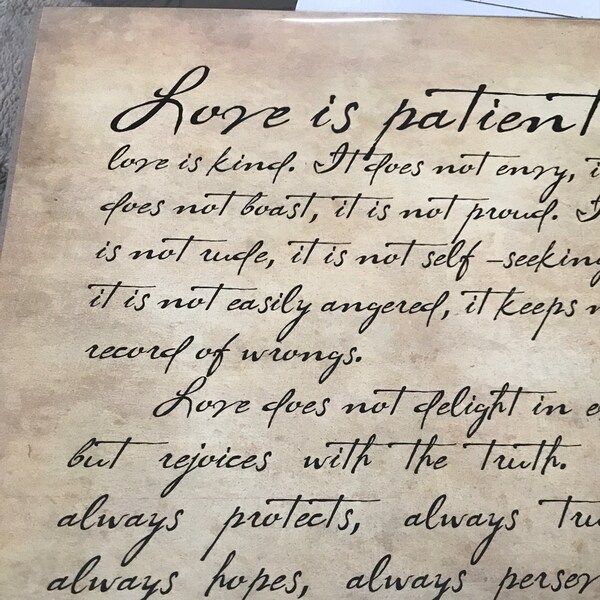 Love is patient
love is kind. It does not envy, i
does not boast, it is not proud. I
is not rude, it is not self -seeking
it is not easily angered, it keeps n
record of wrongs.
Love does not delight in e
but rejoices with the truth.
always protects, always tru
always hopes, always perser